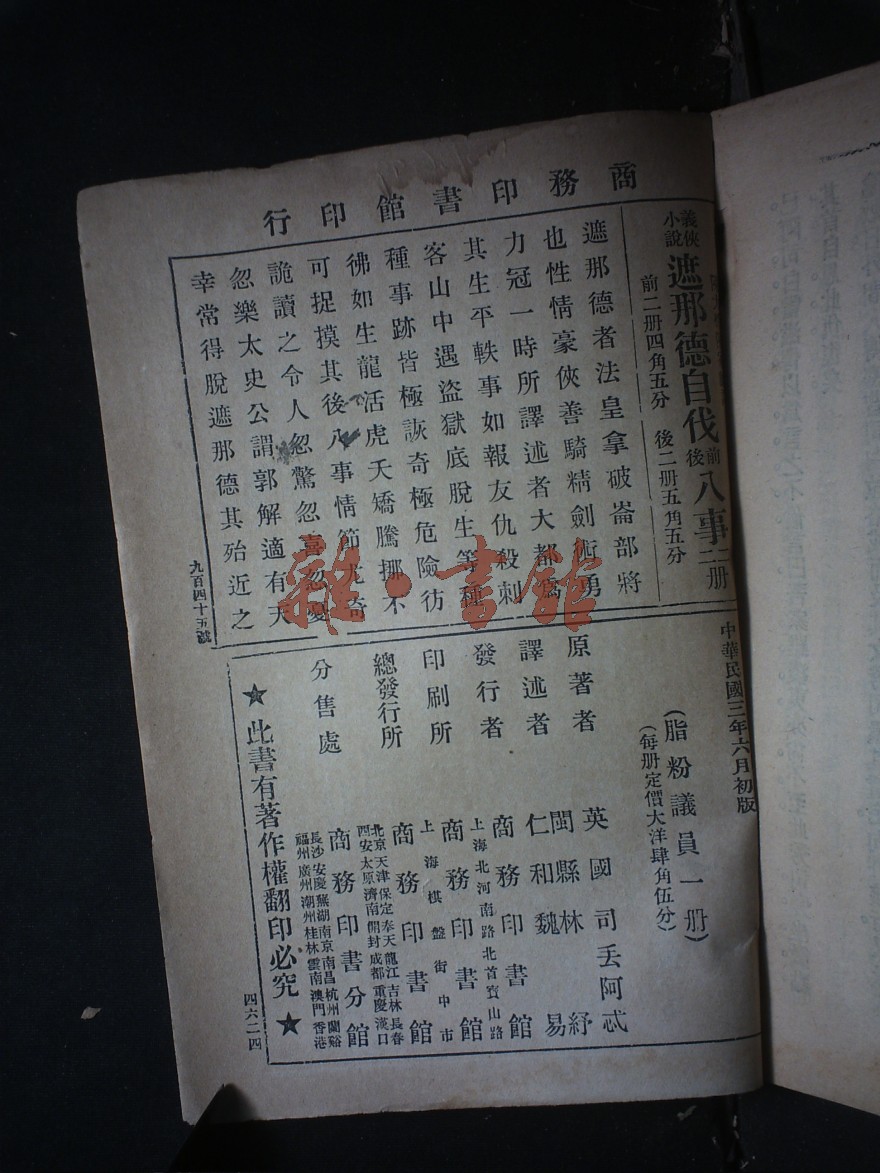 商務印書館印行
義俠小說
遮那德自伐前後八事
二册
二册
前二册四角五分
後二册五角五分
遮那德者法皇拿破崙部將
也性情豪俠善騎精劍術勇
力冠一時所譯述者大都爲
其生平軼事如報友仇殺刺
客山中遇盜獄底脫生等種
種事跡皆極詼奇極危險彷
彿如生龍活虎天矯騰挪不
可捉摸其後八事情節尤奇
詭讀之令人忽驚忽喜忽憂
忽樂太史公謂郭解適有天
幸常得脫遮那德其殆近之
九百四十五號
中華民國三年六月初版
(脂粉議員一册)
(每册定價大洋肆角伍分)
原著者 英國司丢阿忒
譯述者 閩縣林紓
仁和魏易
發行者 商務印書館
上海北河南路北首寶山路
印刷所 商務印書館
上海棋盤街中市
總發行所 商務印書館
北京天津保定奉天龍江吉林長春
西安太原濟南開封成都重慶漢口
分售處 商務印書分館
長沙安慶蕪湖南京南昌杭州蘭谿
福州廣州潮州桂林雲南澳門香港
★此書有著作權翻印必究★
四六二四
雜·書館